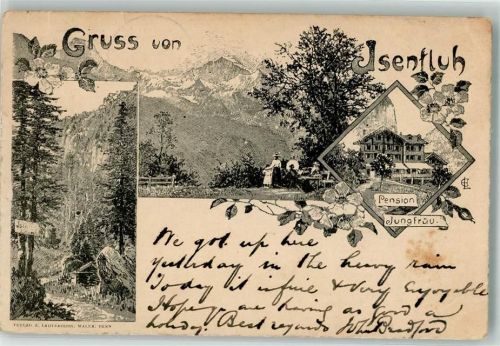 Gruss von Isenfluh
Pension
Jungfrau
We got up here
yesterday in the heavy rain
Today it is fine & very enjoyable
Hope you are having as good a
holiday. Best regards John Bradford